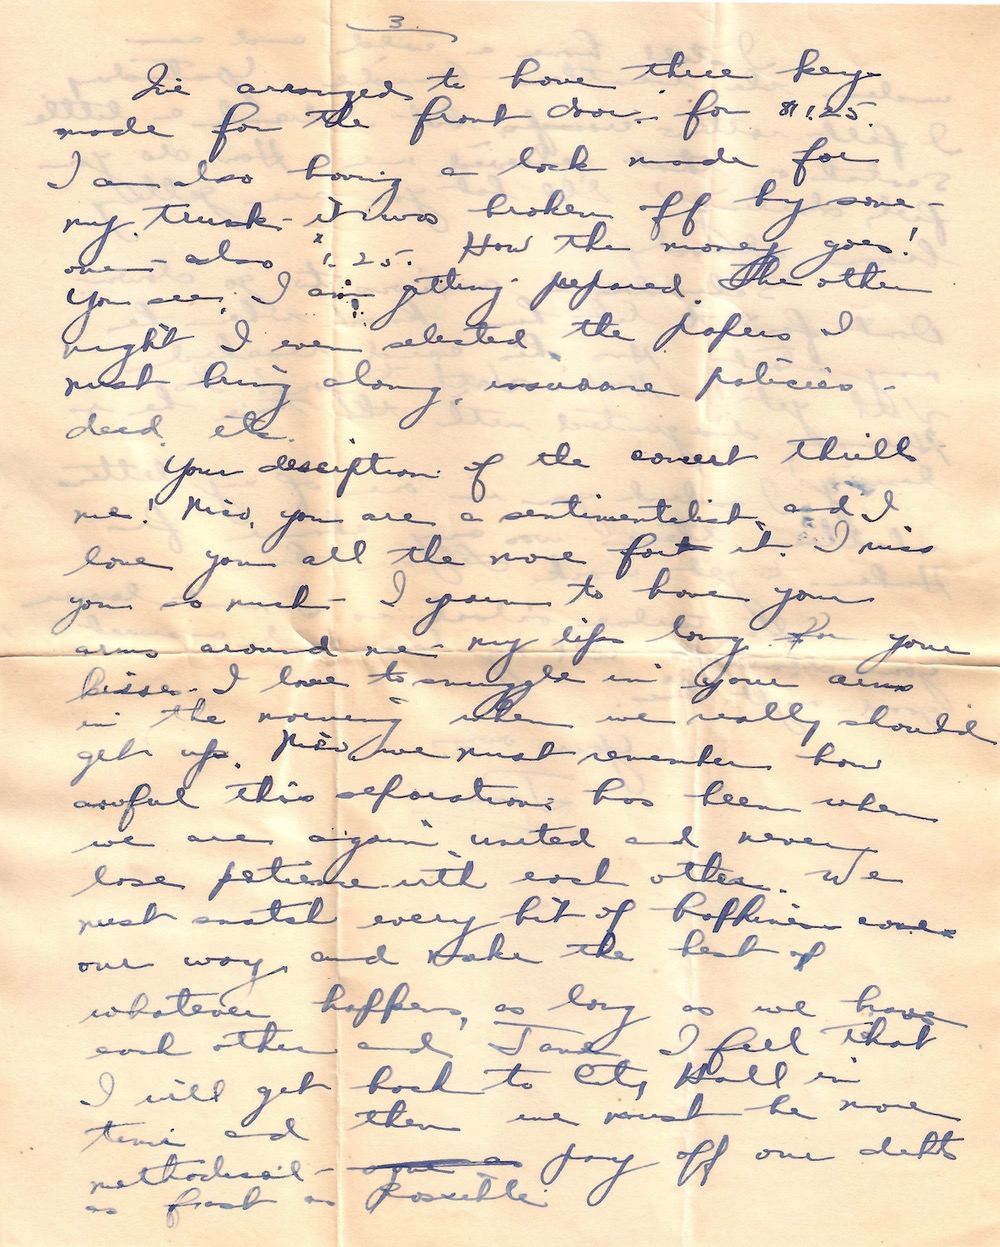 3
I've arranged to have three keys
made for the front door - for $1.25.
I am also having a lock made for
my trunk - it was broken off by some-
one - also $1.25. How the money goes!
You see, I am getting prepared. The other
night I even selected the papers I
must bring along, insurance policies -
deed etc.
Your desciption of the concert thrills
me! you are a sentimentalist, and I
love you all the more for it. I miss
you so much - I yearn to have your
arms around me - my lips long for your
kisses. I love to snuggle in your arms
in the morning when we really should
get up. we must remember how
awful this separation has been when
we are again united and never
lose patience with each other. We
must snatch every bit of happiness comes
our way, and make the best of
whatever happens, as long as we have
each other and Jane. I feel that
I will get back to City Hall in
time and then we must be more
methodical - pay off our debts
as fast as possible.